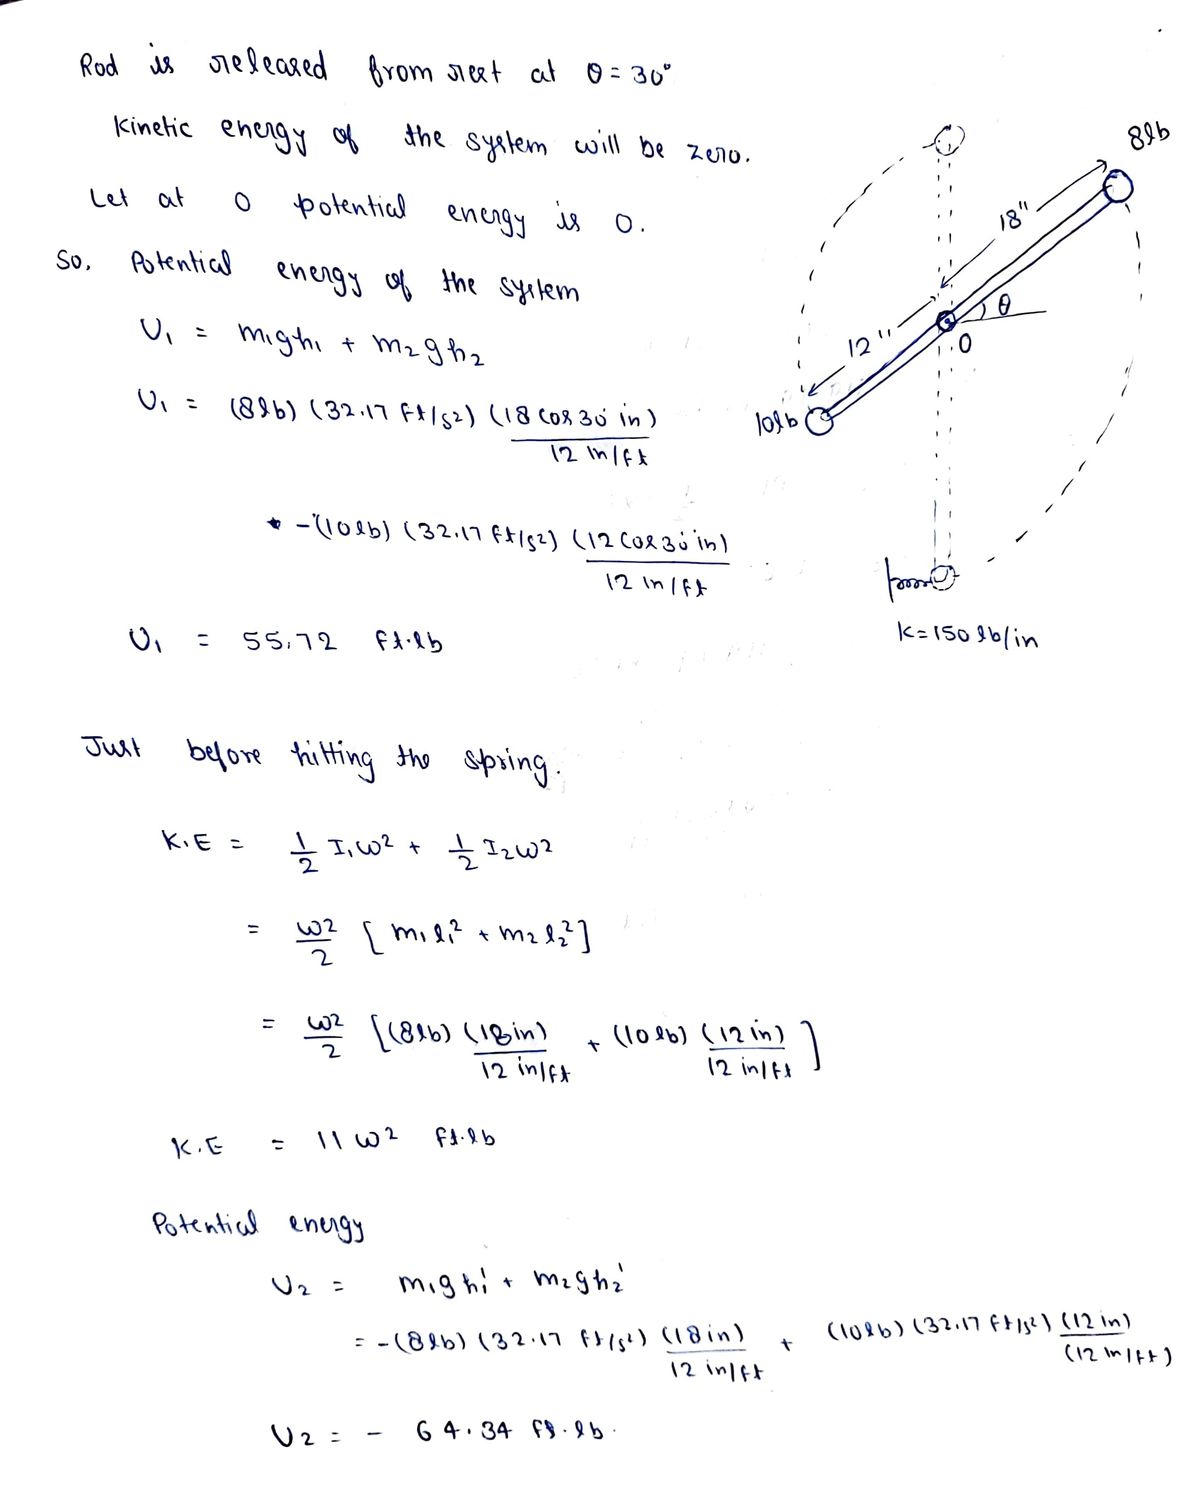 Rod is released from rest at θ = 30°
Kinetic energy of the system will be zero.
Let at 0 potential energy is 0.
So, Potential energy of the system
U₁ = m₁gh₁ + m₂gh₂
U₁ = (8lb) (32.17 ft/s²) (18 cos 30° in)
12 in/ft
-(10lb) (32.17 ft/s²) (12 cos 30° in)
12 in/ft
U₁ = 55.72 ft.lb
8lb
18"
θ
12"
O
10lb
K=150 lb/in
Just before hitting the spring.
K.E = 1/2 I₁ω² + 1/2 I₂ω²
= ω²/2 [m₁l₁² + m₂l₂²]
= ω²/2 [(8lb) (18in) / 12 in/ft + (10lb) (12in) / 12 in/ft]
K.E = 11ω² ft.lb
Potential energy
U₂ = m₁gh₁' + m₂gh₂'
= -(8lb) (32.17 ft/s²) (18in) / 12 in/ft + (10lb) (32.17 ft/s²) (12in) / (12 in/ft)
U₂ = - 64.34 ft.lb.